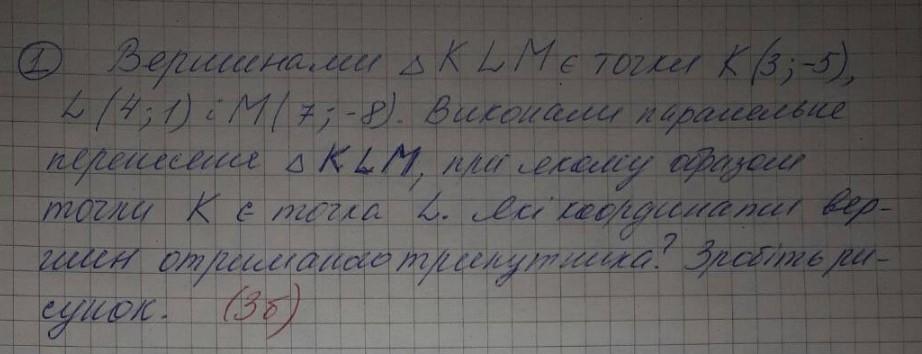 ① Вершинами △KLM є точки K(3;-5),
L(4;1) і M(7;-8). Виконали паралельне
перенесення △KLM, при якому образом
точки K є точка L. Які координати вер-
шин отриманого трикутника? Зробіть ри-
сунок. (3б)